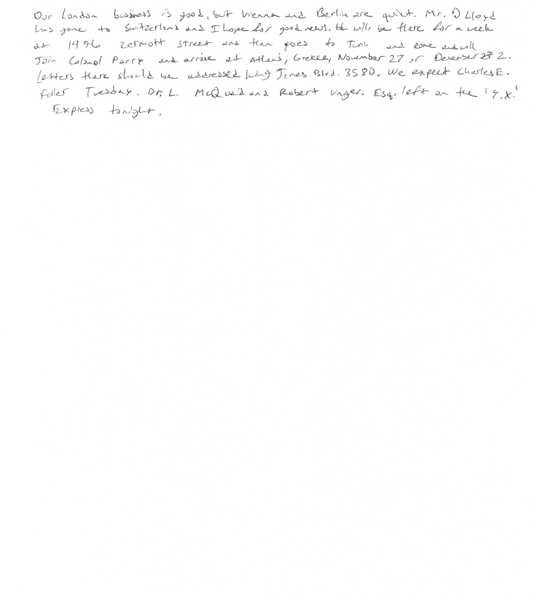 Our London business is good, but Vienna and Berlin are quiet. Mr. D Lloyd
has gone to Switzerland and I hope for good news. He will be there for a week
at 1496 zermott street and then goes to Turin and Rome and will
Join Colonel Parry and arrive at athens, Greece, November 27 or December 2.
letters there should be addressed King James Blvd. 3580. We expect Charles E.
Fuller Tuesday. Dr. L. McQuaid and Robert Unger. Esq. left on the 'Y.X.'
Express tonight.